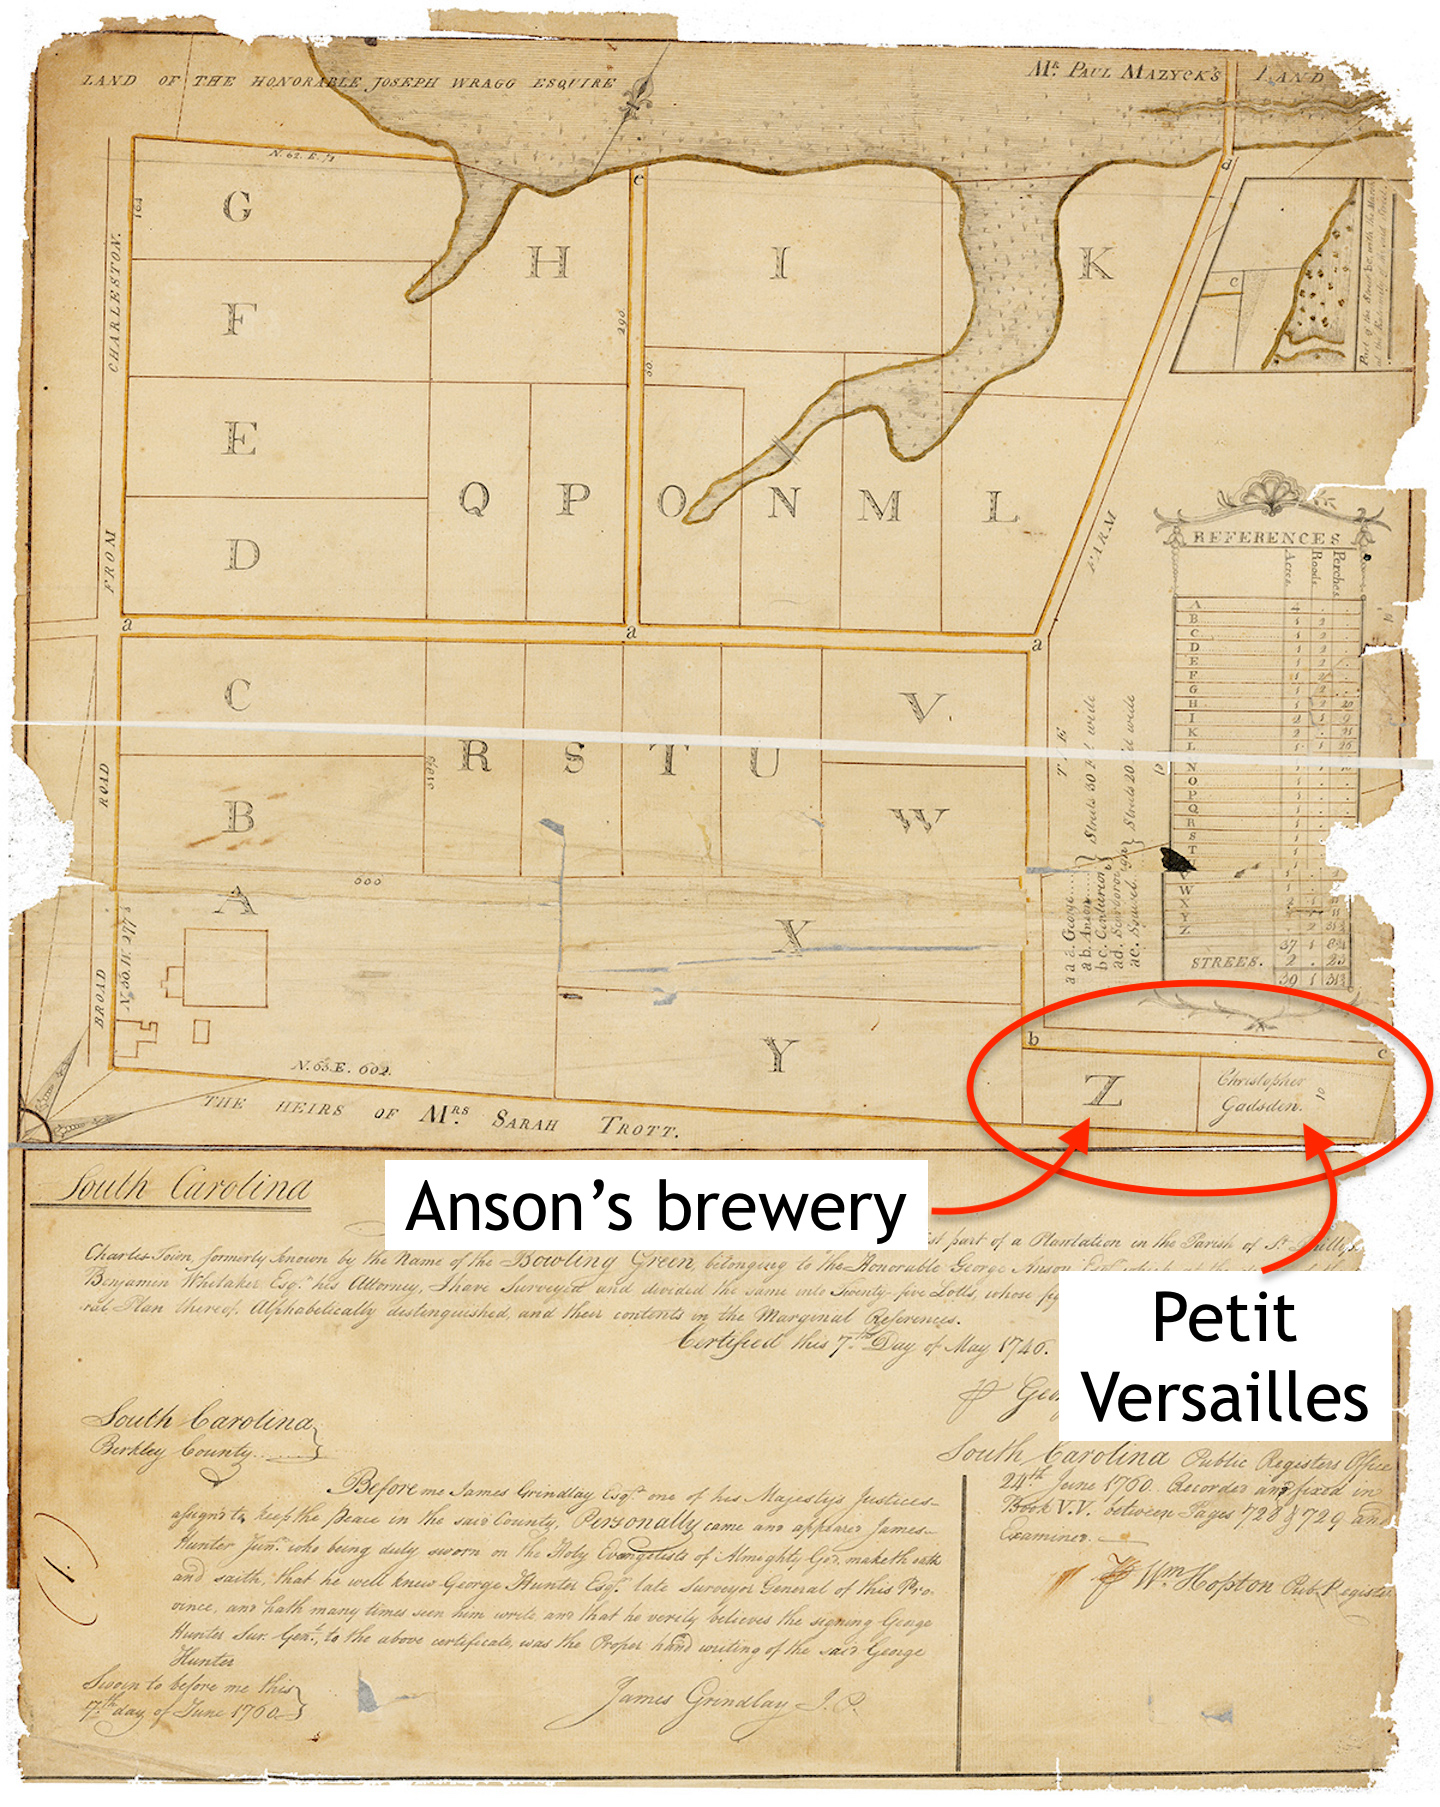 LAND OF THE HONORABLE JOSEPH WRAGG ESQUIRE
MR. PAUL MAZYCK'S LAND
N. 62. E.
d
e
G
H
I
K
c
F
290
E
Q
P
O
N
M
L
D
FARM
FROM CHARLESTON.
a
a
a
REFERENCES
Acres
Roods
Perches
A 4 . .
B 1 2 .
C 1 2 .
D 1 2 .
E 1 2
F 1 2
G 1 2
H 1 2 20
I 2 1 9
K 2
L 1 1 26
N 1
O 1
P 1
Q 1
R 1
S 1
T 1
W
Y
Z
STREES. 2 . 23
39 1
C
V
R
S
T
U
B
W
THE
Streets 30 Ft wide
Streets 20 Ft wide
a a a. George
a b. Anson
b c. Centurion
a d. Scarborow
a e. Squirrel
ROAD
BROAD
600
A
X
Y
b
c
Z
Christopher
Gadsden.
N. 65. E. 602.
THE HEIRS OF MRS. SARAH TROTT.
Anson's brewery
Petit
Versailles
South Carolina
part of a Plantation in the Parish of St. Phillips
Charles Town, formerly known by the Name of the Bowling Green, belonging to the Honorable George Anson Esqr. which at the
Benjamin Whitaker Esqr. his Attorney, I have Surveyed and divided the same into Twenty-five Lotts, whose
ral Plan thereof. Alphabetically distinguished, and their contents in the Marginal References.
Certified this 7th Day of May 1746.
South Carolina
Berkley County.
Before me James Grindlay Esqr. one of his Majestys Justices
assign'd to keep the Peace in the said County, Personally came and appeared James
Hunter Junr. who being duly sworn on the Holy Evangelists of Almighty God, maketh oath
and saith, that he well knew George Hunter Esqr. late Surveyor General of this Pro-
vince, and hath many times seen him write and that he verily believes the signing George
Hunter Sur. Genl., to the above certificate, was the Proper hand writing of the said George
Hunter
Sworn to before me this
7th day of June 1760
James Grindlay J. P.
South Carolina Public Registers Office
24th June 1760. Recorded and fixed in
Book V.V. between Pages 728 & 729 and
Examined.
Wm. Hopton Pub. Register
(1.)